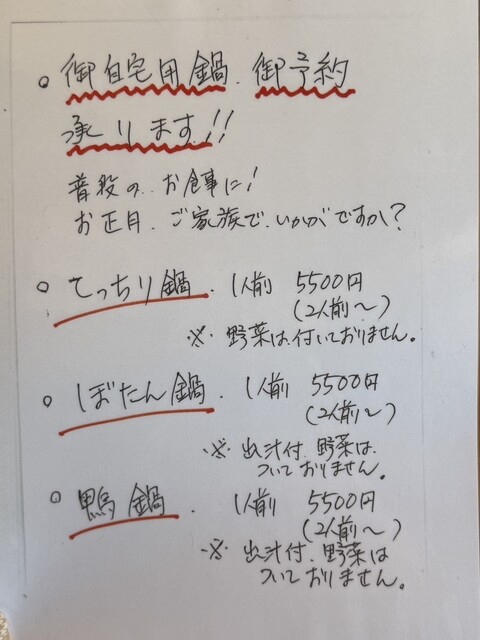 ○ 御自宅用鍋. 御予約
承ります!!
普段の.. お食事に!
お正月. ご家族で. いかがですか?
○ てっちり鍋. 1人前 5500円
(2人前〜)
※ 野菜は. 付いておりません。
○ ぼたん鍋. 1人前 5500円
(2人前〜)
※ 出汁付. 野菜は.
ついておりません。
○ 鴨鍋. 1人前 5500円
(2人前〜)
※ 出汁付. 野菜は
ついておりません。